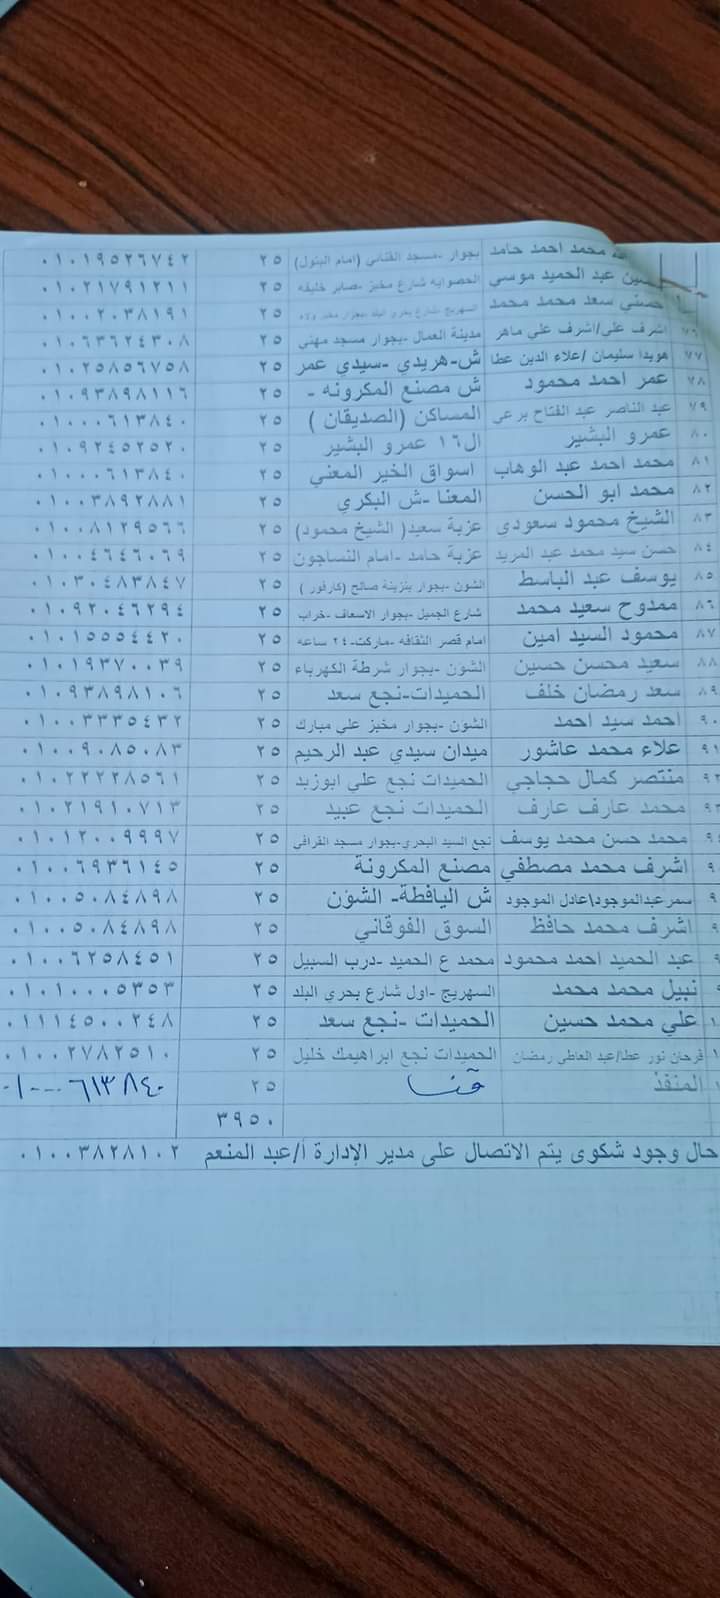 محمد احمد حامد بجوار -مسجد القناني (امام البنزل) ٢٥ ٠١٠١٩٥٢٦٧٤٢
عبد الحميد موسي الحصوايه شارع مخبز -صابر خليفه ٢٥ ٠١٠٢١٧٩١٢١١
حسني سعد محمد محمد السهريج -شارع بحري البلد -بجوار مخبز ٢٥ ٠١٠٠٢٠٣٨١٩١
٧٦ اشرف علي/اشرف علي ماهر مدينة العمال -بجوار مسجد مهني ٢٥ ٠١٠٦٣٦٢٤٣٠٨
٧٧ هويدا سليمان /علاء الدين عطا ش-هريدي -سيدي عمر ٢٥ ٠١٠٢٥٨٥٦٧٥٨
٧٨ عمر احمد محمود ش مصنع المكرونه - ٢٥ ٠١٠٩٣٨٩٨١١٦
٧٩ عبد الناصر عبد الفتاح برعي المساكن (الصديقان ) ٢٥ ٠١٠٠٠٦١٣٨٤٠
٨٠ عمرو البشير ال١٦ عمرو البشير ٢٥ ٠١٠٩٢٤٥٢٥٢٠
٨١ محمد احمد عبد الوهاب اسواق الخير المعني ٢٥ ٠١٠٠٠٦١٣٨٤٠
٨٢ محمد ابو الحسن المعنا -ش البكري ٢٥ ٠١٠٠٣٨٩٢٨٨١
٨٣ الشيخ محمود سعودي عزبة سعيد( الشيخ محمود) ٢٥ ٠١٠٠٨١٢٩٥٦٦
٨٤ حسن سيد محمد عبد المريد عزبة حامد -امام النساجون ٢٥ ٠١٠٠٤٦٤٦٠٦٩
٨٥ يوسف عبد الباسط الشون -بجوار بنزينة صالح (كارفور ) ٢٥ ٠١٠٣٠٤٨٣٨٤٧
٨٦ ممدوح سعيد محمد شارع الجميل -بجوار الاسعاف -خراب ٢٥ ٠١٠٩٢٠٤٦٢٩٤
٨٧ محمود السيد امين امام قصر الثقافه -ماركت-٢٤ ساعه ٢٥ ٠١٠١٥٥٥٤٤٢٠
٨٨ سعيد محسن حسين الشون -بجوار شرطة الكهرباء ٢٥ ٠١٠١٩٣٧٠٠٣٩
٨٩ سعد رمضان خلف الحميدات-نجع سعد ٢٥ ٠١٠٩٣٨٩٨١٠٦
٩٠ احمد سيد احمد الشون -بجوار مخبز علي مبارك ٢٥ ٠١٠٠٣٣٣٥٤٣٢
٩١ علاء محمد عاشور ميدان سيدي عبد الرحيم ٢٥ ٠١٠٠٩٠٨٥٠٨٣
٩٢ منتصر كمال حجاجي الحميدات نجع علي ابوزيد ٢٥ ٠١٠٢٢٢٢٨٥٦١
٩٣ محمد عارف عارف الحميدات نجع عبيد ٢٥ ٠١٠٢١٩١٠٧١٣
محمد حسن محمد يوسف نجع السيد البحري-بجوار مسجد القرافي ٢٥ ٠١٠١٢٠٠٩٩٩٧
اشرف محمد مصطفي مصنع المكرونة ٢٥ ٠١٠٠٦٩٣٦١٤٥
سمرعبدالموجود\عادل الموجود ش اليافطة- الشؤن ٢٥ ٠١٠٠٥٠٨٤٨٩٨
اشرف محمد حافظ السوق الفوقاني ٢٥ ٠١٠٠٥٠٨٤٨٩٨
عبد الحميد احمد محمود محمد ع الحميد -درب السبيل ٢٥ ٠١٠٠٦٢٥٨٤٥١
نبيل محمد محمد السهريج -اول شارع بحري البلد ٢٥ ٠١٠١٠٠٠٥٣٥٣
علي محمد حسين الحميدات -نجع سعد ٢٥ ٠١١١٤٥٠٠٢٤٨
فرحان نور عطا/عبد العاطي رمضان الحميدات نجع ابراهيمك خليل ٢٥ ٠١٠٠٢٧٨٢٥١٠
المنفذ قنا ٢٥ ٠١٠٠٠٦١٣٨٤٠
٣٩٥٠
حال وجود شكوى يتم الاتصال على مدير الإدارة أ/عبد المنعم ٠١٠٠٣٨٢٨١٠٢